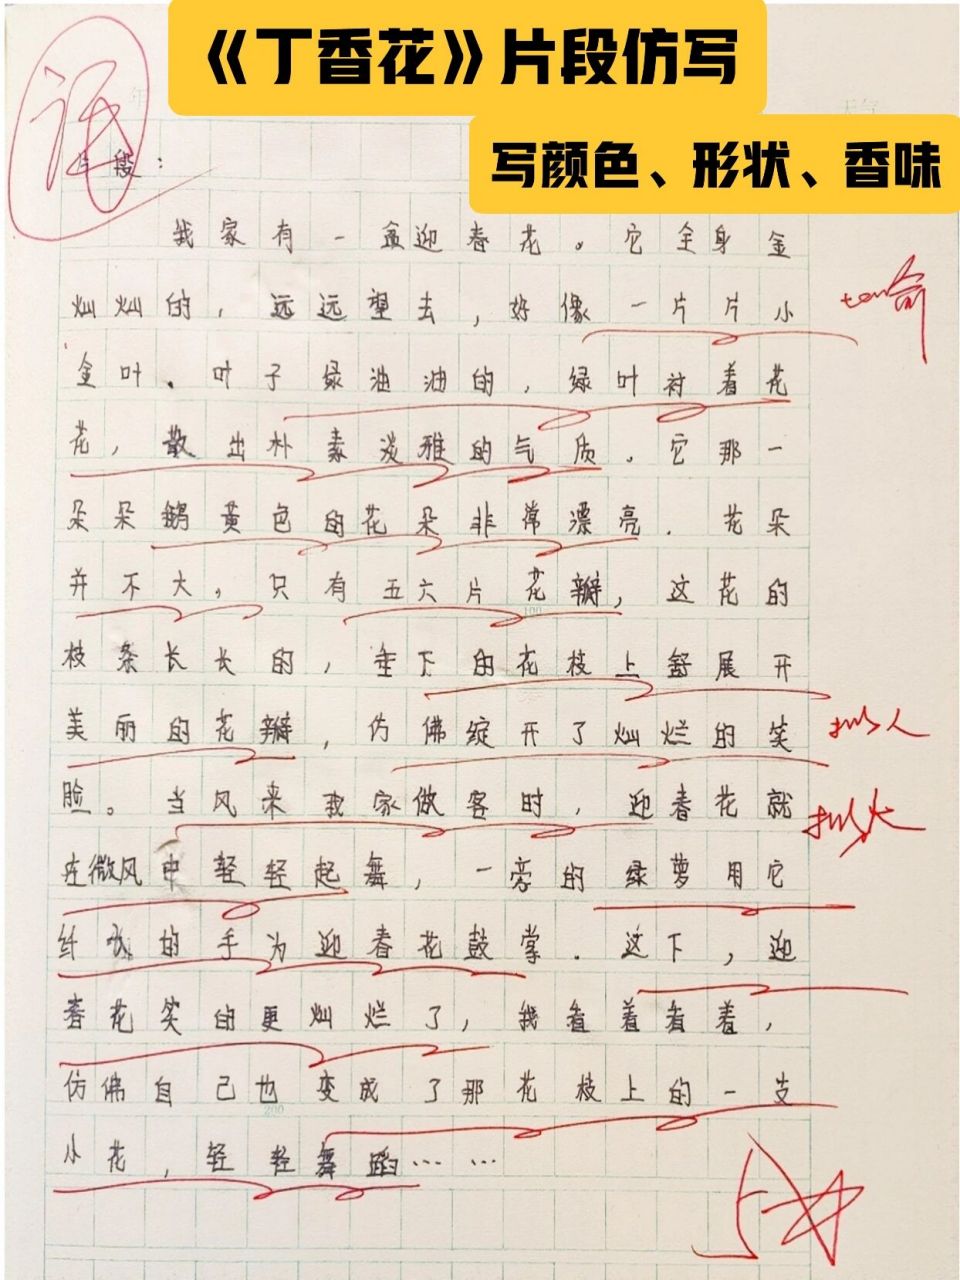 《丁香花》片段仿写
写颜色、形状、香味
年
天气
片段：
我家有一盆迎春花。它全身金
灿灿的，远远望去，好像一片片小
金叶。叶子绿油油的，绿叶衬着花
花，散出朴素淡雅的气质。它那一
朵朵鹅黄色的花朵非常漂亮．花朵
并不大，只有五六片花瓣，这花的
100
枝条长长的，垂下的花枝上舒展开
美丽的花瓣，仿佛绽开了灿烂的笑
拟人
脸。当风来我家做客时，迎春花就
在微风中轻轻起舞，一旁的绿萝用它
纤 的手为迎春花鼓掌．这下，迎
春花笑的更灿烂了，我看着看着，
仿佛自己也变成了那花枝上的一支
200
小花，轻轻舞蹈……